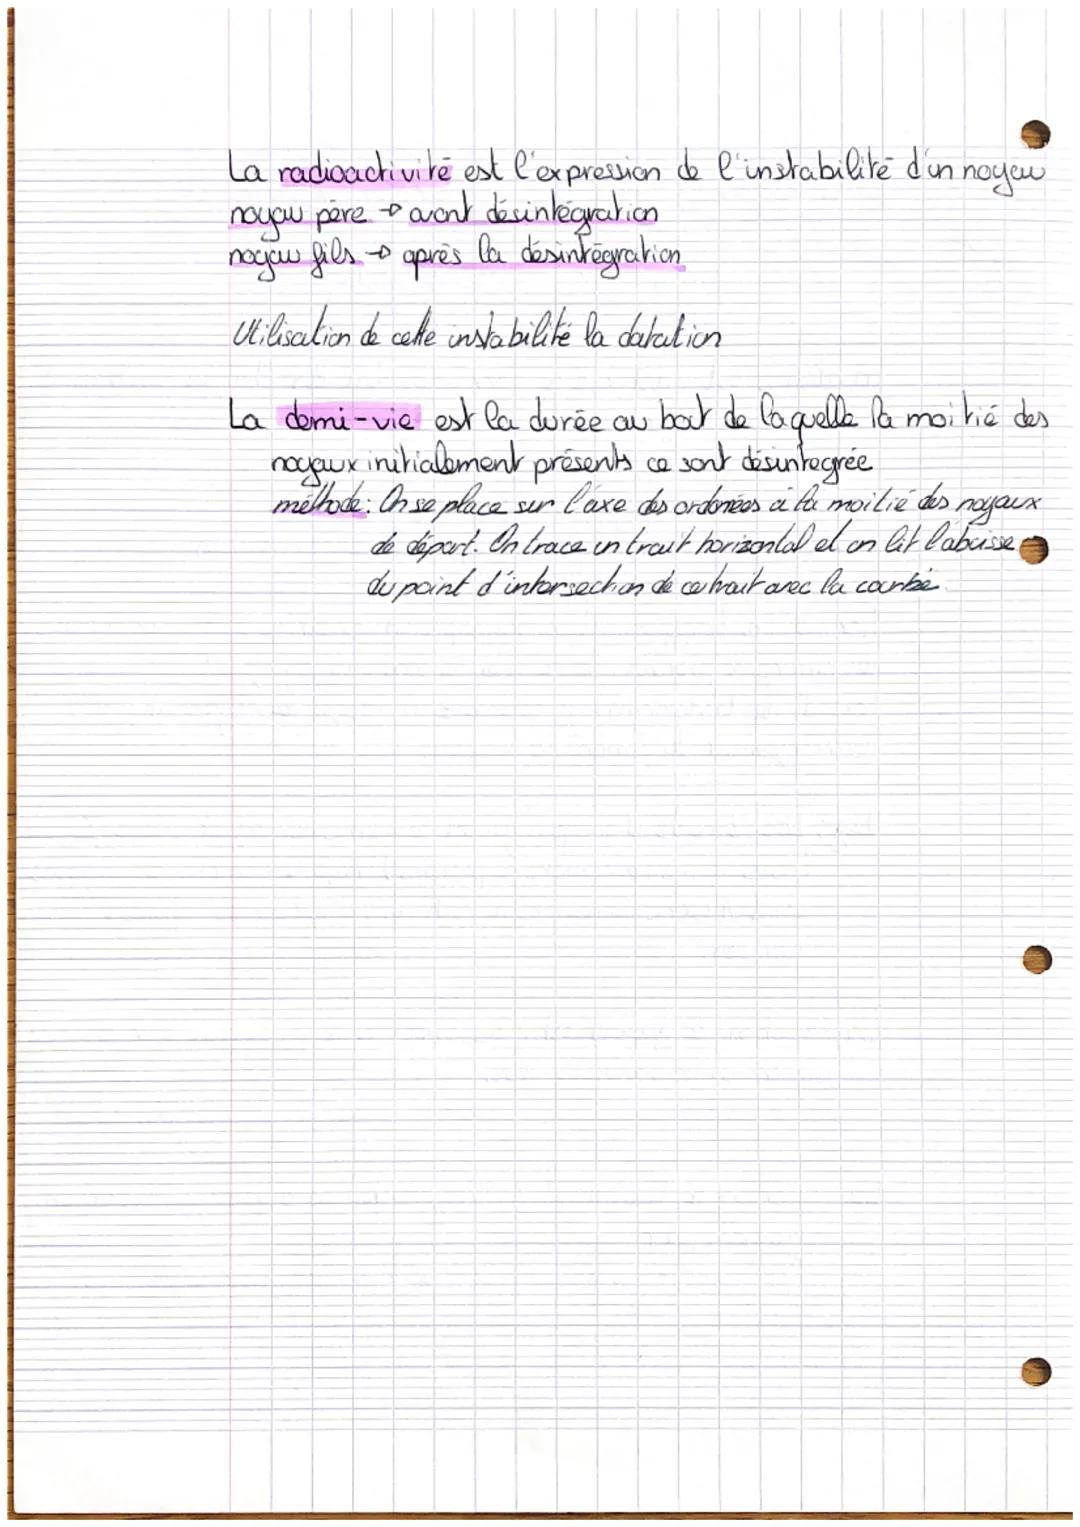 La radioactivité est l'expression de l'instabilité d'un noyau
noyau père → avant désintégration
noyau fils → après la désintégration
Utilisation de cette instabilité la datation
La demi-vie est la durée au bout de laquelle la moitié des
noyaux initialement présents ce sont désintegrée
méthode: On se place sur l'axe des ordonées à la moitié des noyaux
de départ. On trace un trait horizontal et on lit l'abcisse
du point d'intersection de ce trait avec la courbe.